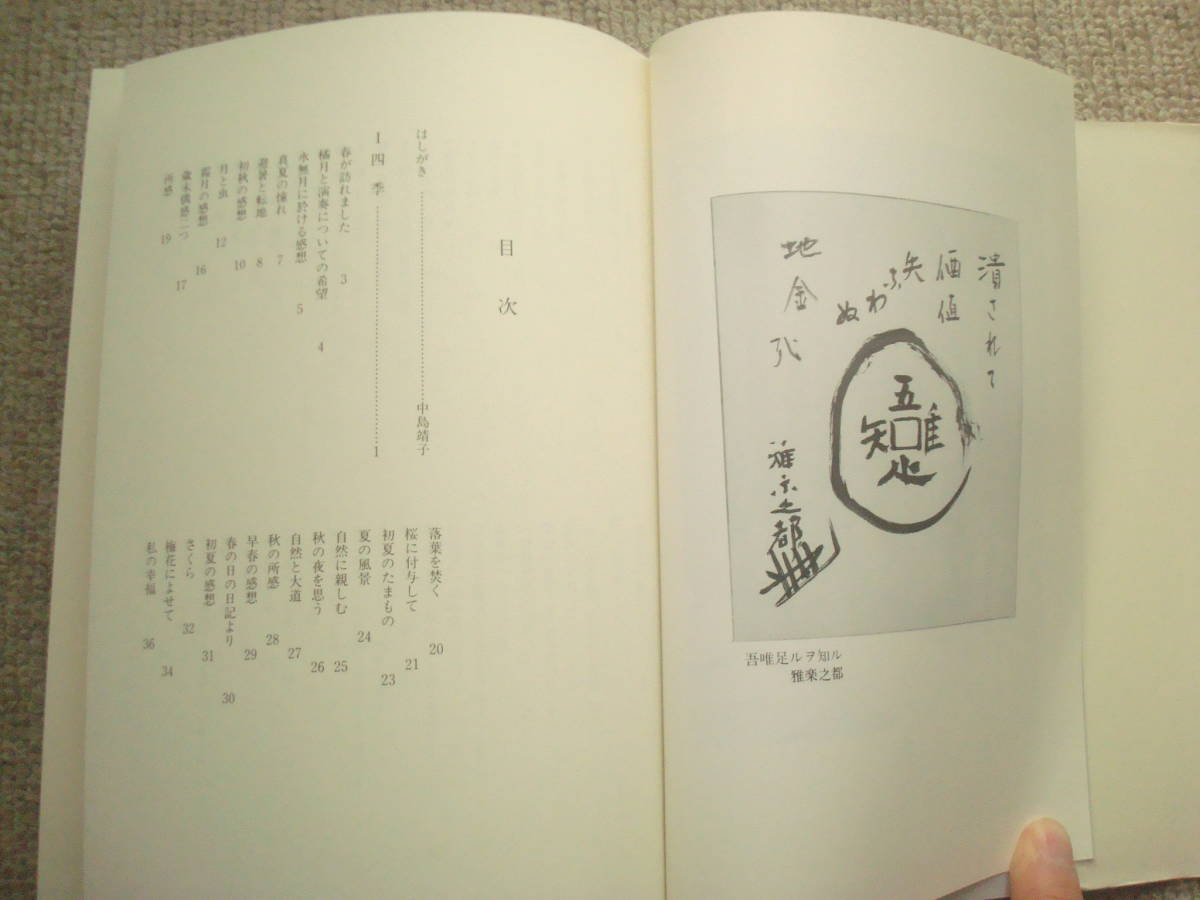 潰されて
価値
失ふ
わぬ
地金哉
五
唯
知
雅楽之都
吾唯足ルヲ知ル
雅楽之都
目次
はしがき……中島靖子
I 四季……1
春が訪れました 3
橘月と演奏についての希望 4
水無月に於ける感想 5
真夏の憧れ 7
避暑と転地 8
初秋の感想 10
月と虫 12
霜月の感想 16
歳末偶感二つ 17
所感 19
落葉を焚く 20
桜に付与して 21
初夏のたまもの 23
夏の風景 24
自然に親しむ 25
秋の夜を思う 26
自然と大道 27
秋の所感 28
早春の感想 29
春の日の日記より 30
初夏の感想 31
さくら 32
梅花によせて 34
私の幸福 36